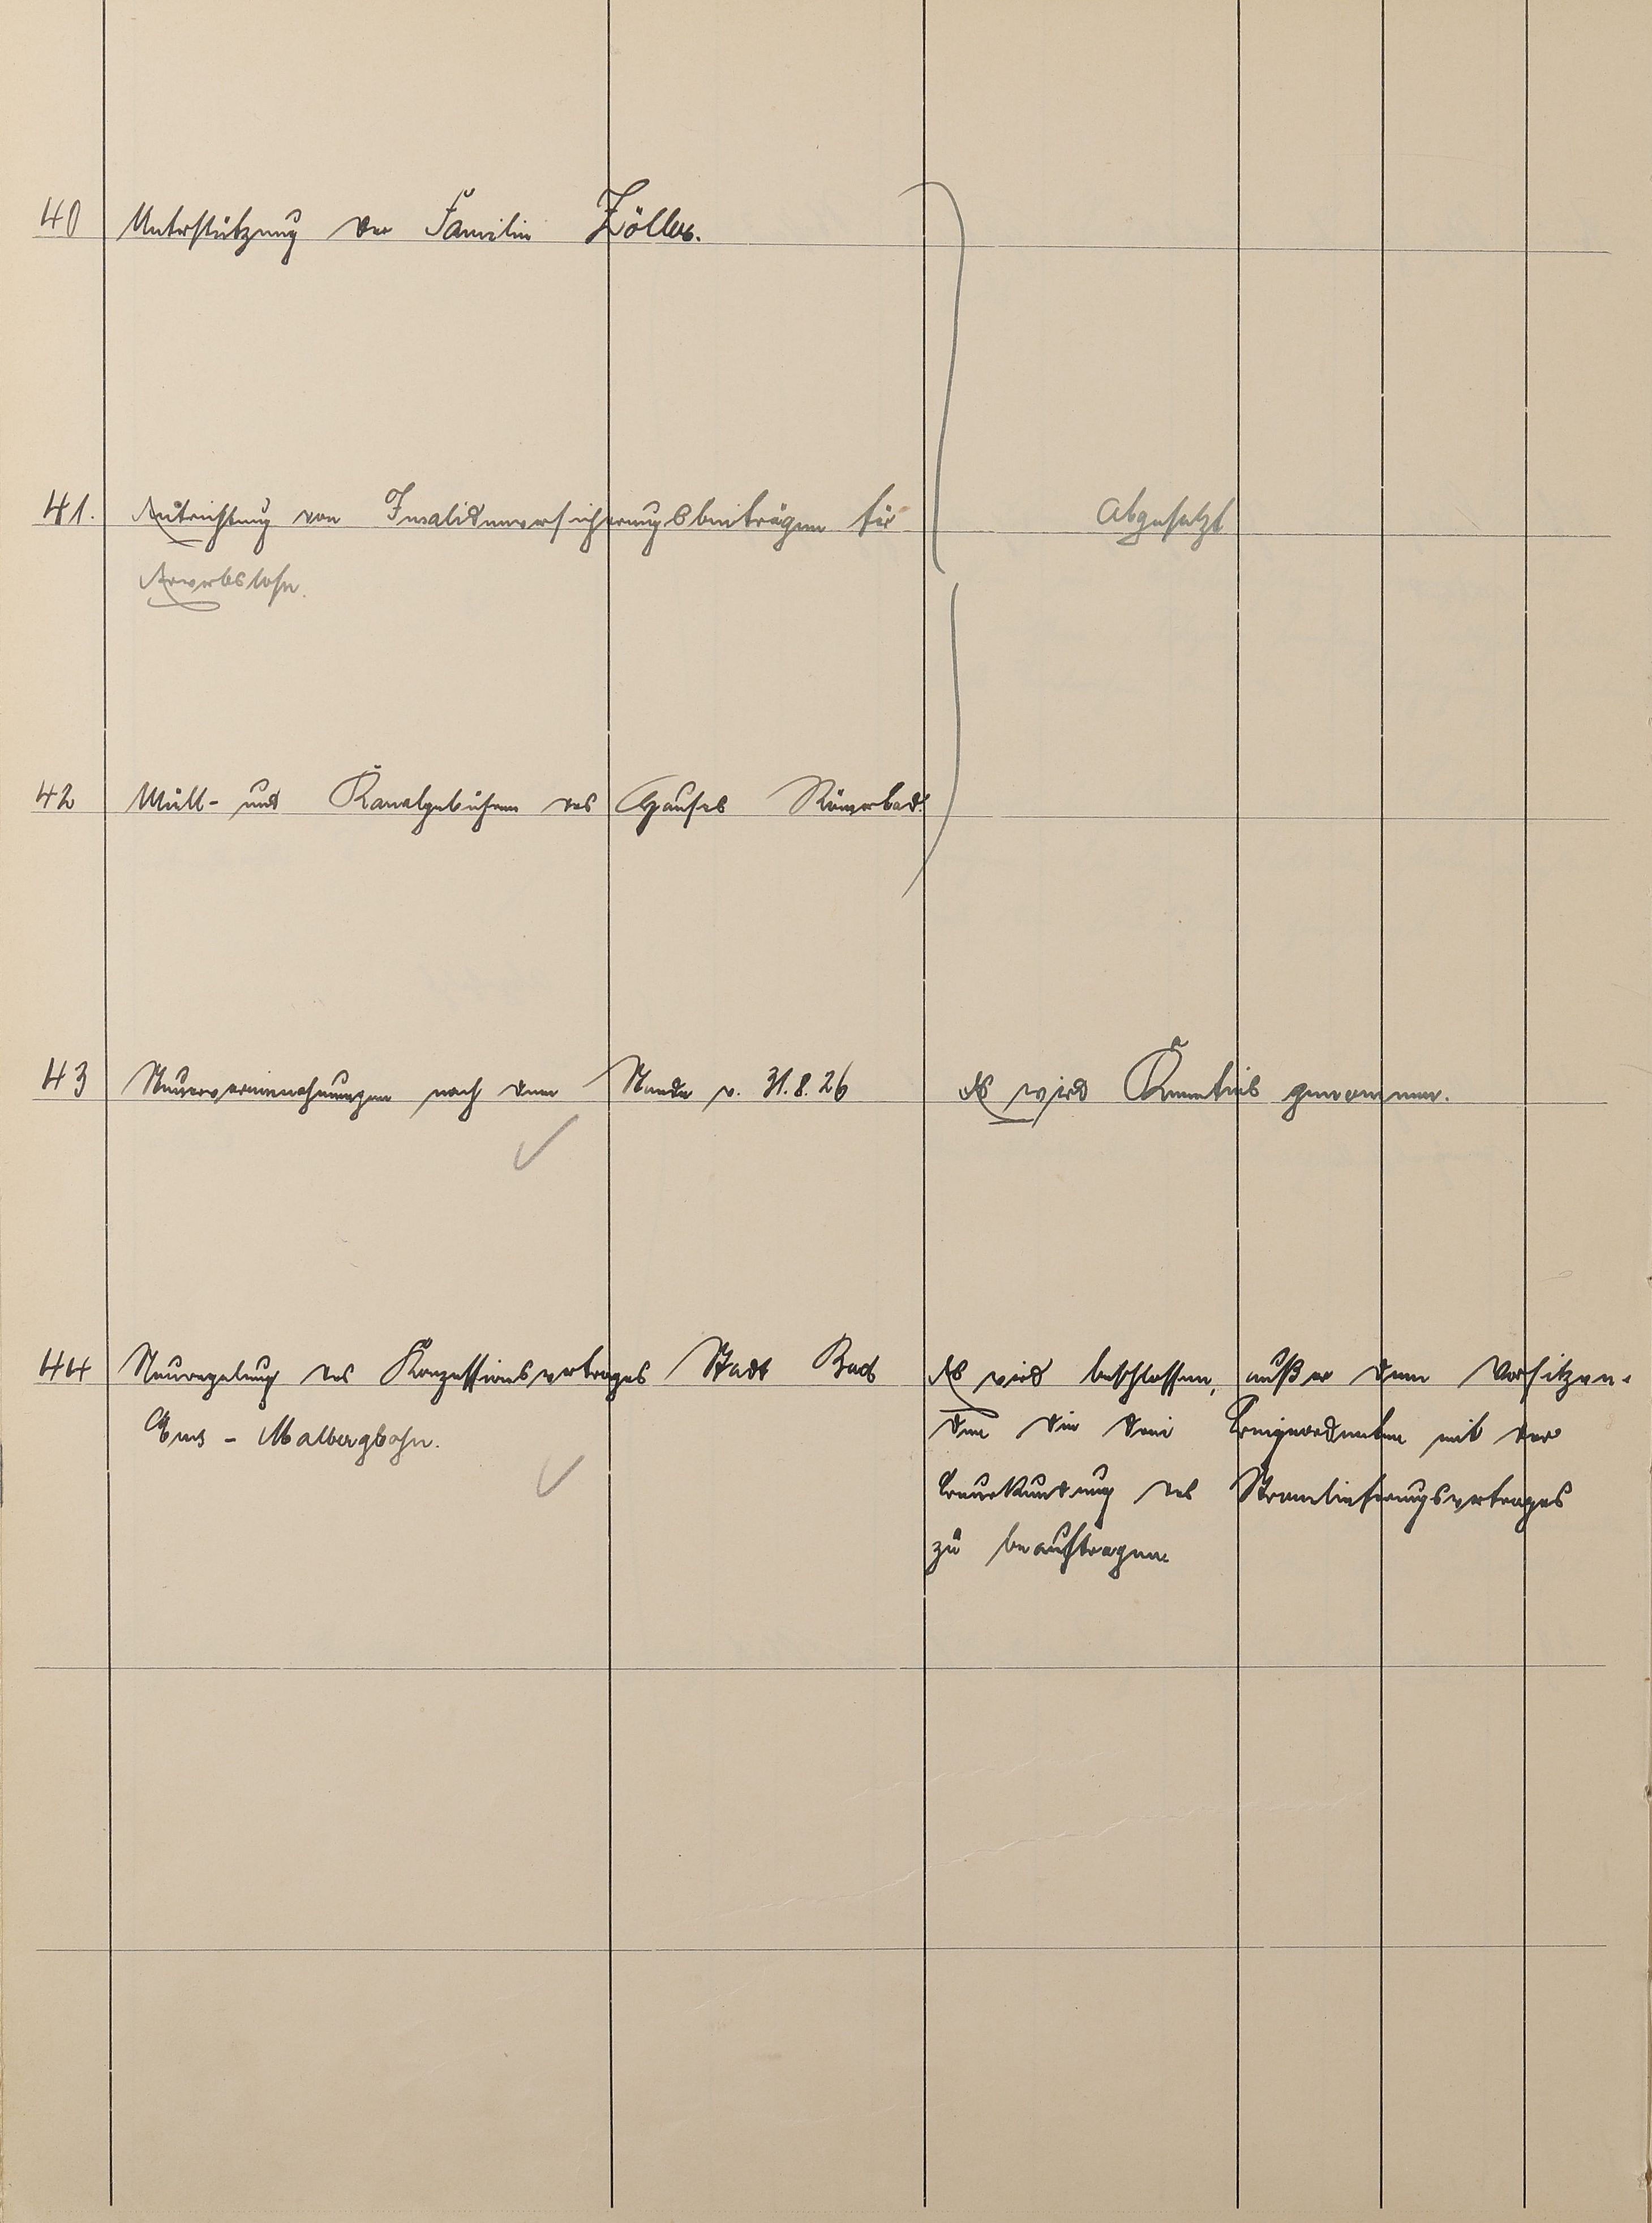 40 Unterstützung der Familie Zöller.
41. Entrichtung von Invalidenversicherungsbeiträgen für
Erwerbslose.
abgesetzt
42 Müll- und Kanalgebühren des Hauses Römerbad.
43 Steuervereinnahmungen nach dem Stande v. 31.8.26
Es wird Kenntnis genommen.
44 Neuregelung des Konzessionsvertrages Stadt Bad
Ems - Malbergbahn.
Es wird beschlossen, außer dem Vorsitzen-
den die drei Beigeordneten mit der
Beurkundung des Stromlieferungsvertrages
zu beauftragen